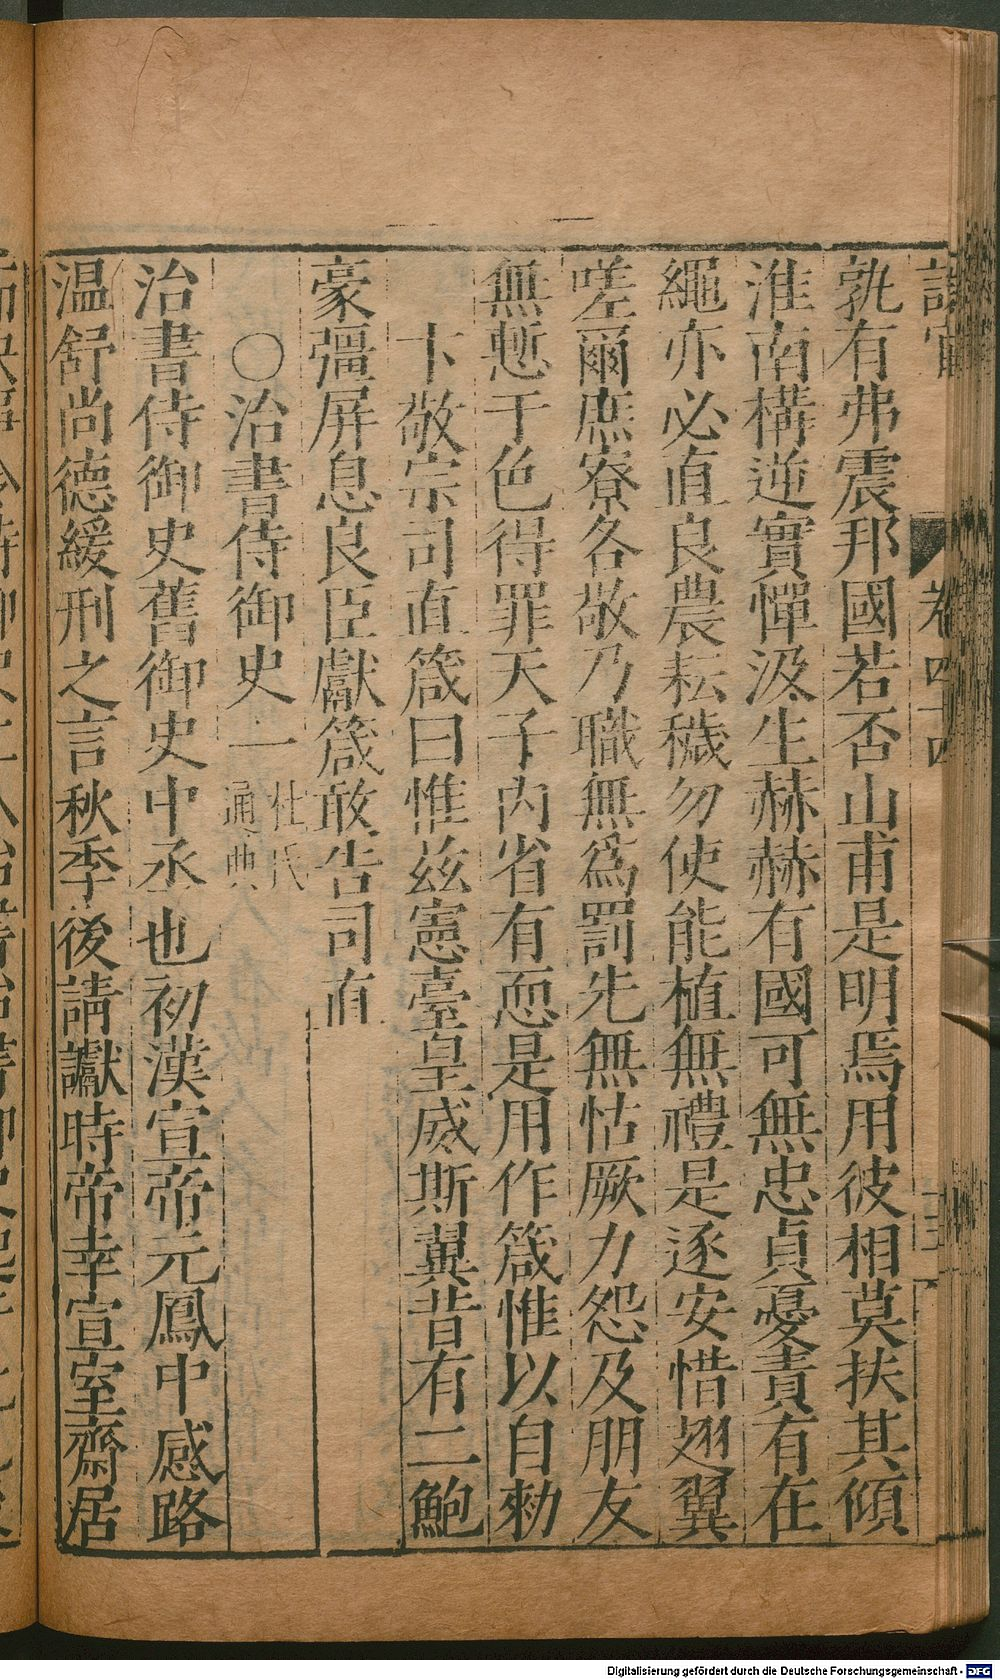 卷四十四
孰有弗震邦國若否山甫是明焉用彼相莫扶其傾
淮南構逆實憚汲生赫赫有國可無忠貞憂責有在
繩亦必直良農耘穢勿使能植無禮是逐安惜翅翼
嗟爾庶寮各敬乃職無爲罰先無怙厥力怨及朋友
無慙于色得罪天子內省有恧是用作箴惟以自勑
卞敬宗司直箴曰惟茲憲臺皇威斯翼昔有二鮑
豪彊屏息良臣獻箴敢告司直
〇治書侍御史一 杜氏通典
治書侍御史舊御史中丞也初漢宣帝元鳳中感路
温舒尚德緩刑之言秋季後請讞時帝幸宣室齋居
Digitalisierung gefördert durch die Deutsche Forschungsgemeinschaft - DFG